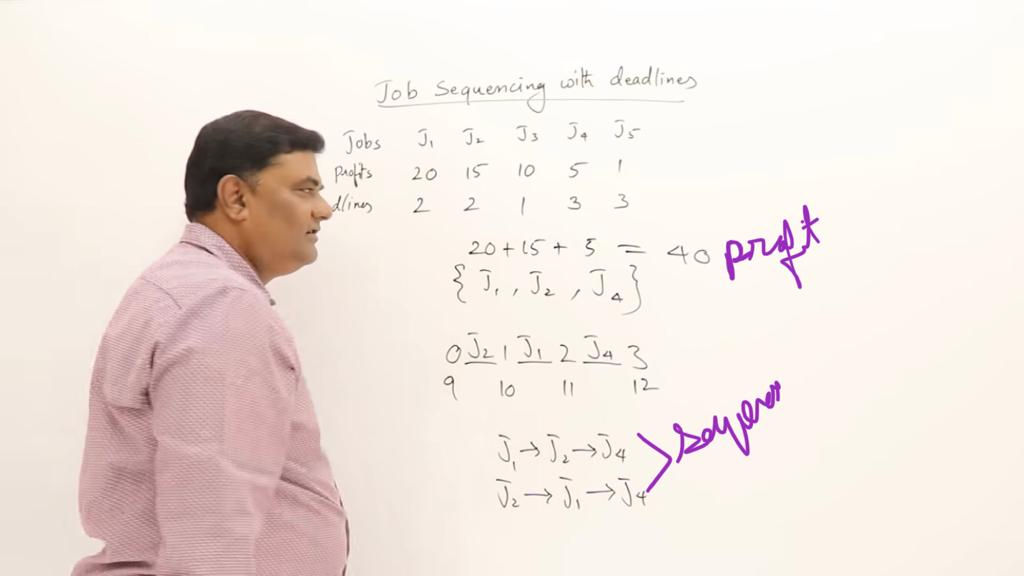 Job Sequencing with deadlines
Jobs J₁ J₂ J₃ J₄ J₅
profits 20 15 10 5 1
dlines 2 2 1 3 3
20+15+5 = 40 profit
{J₁, J₂, J₄}
0 J₂ 1 J₁ 2 J₄ 3
9 10 11 12
J₁→J₂→J₄
J₂→J₁→J₄